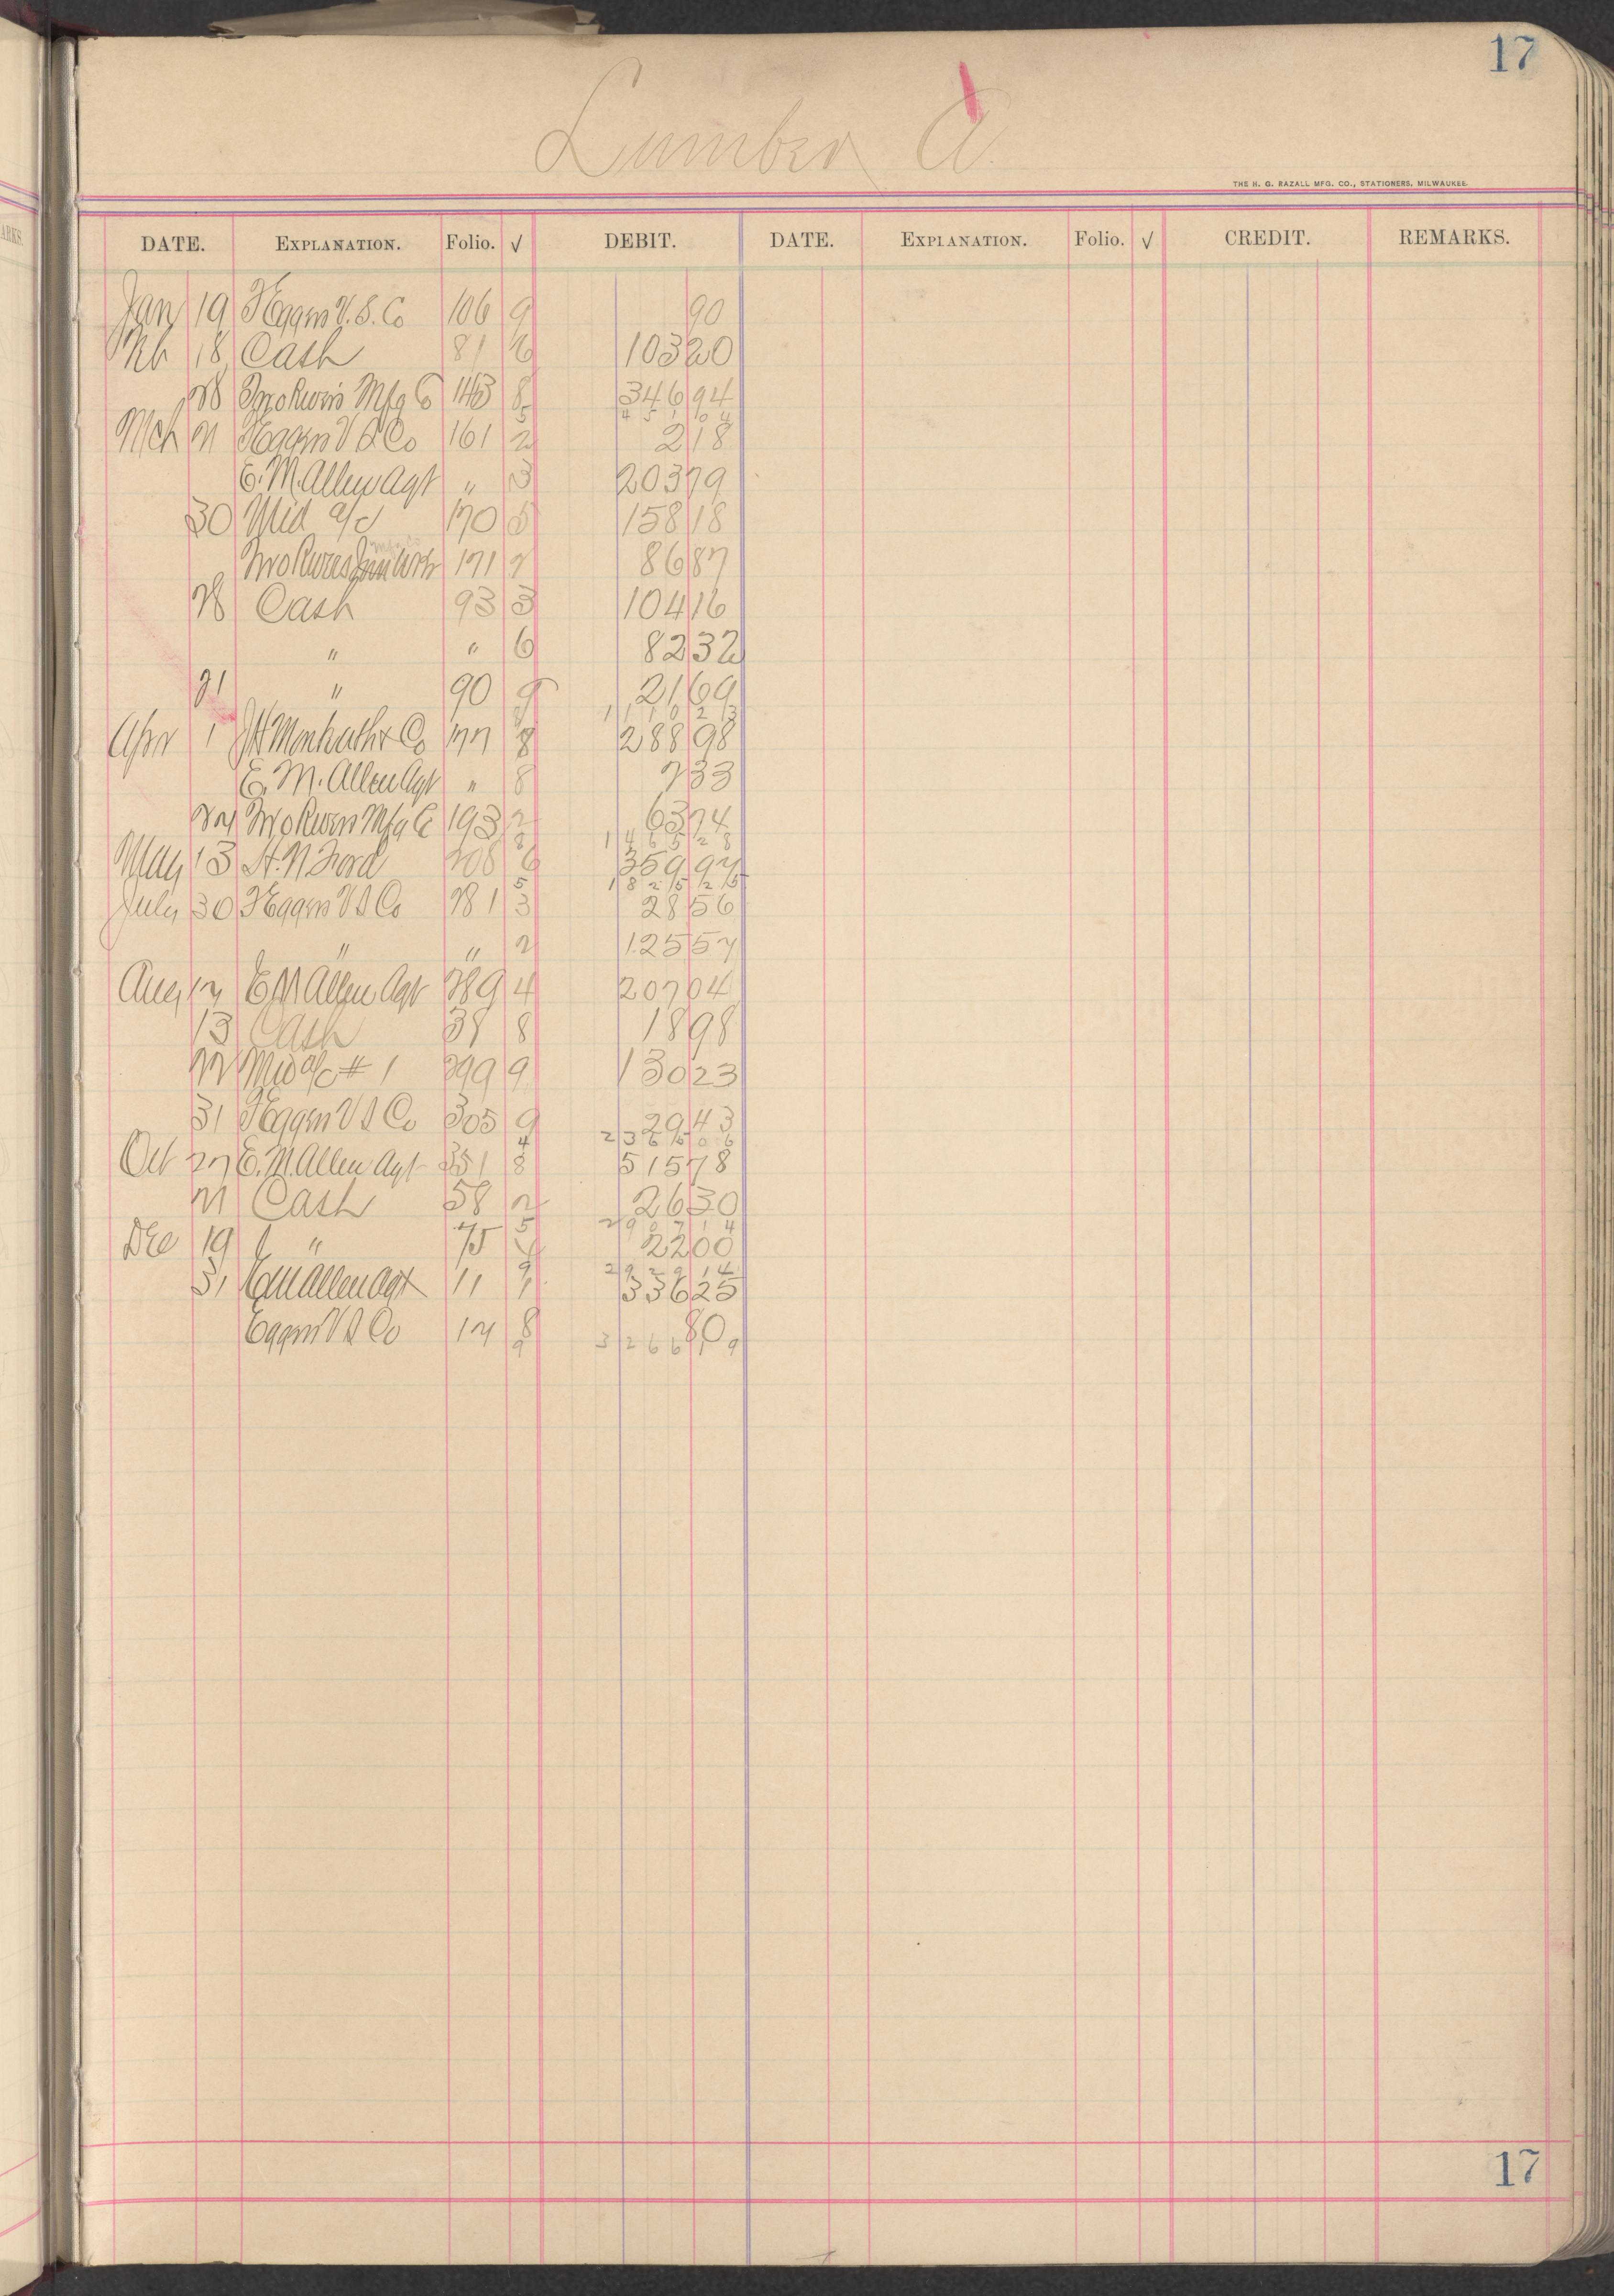 17
Lumber A
THE H. G. RAZALL MFG. CO., STATIONERS, MILWAUKEE.
DATE. EXPLANATION. Folio. √ DEBIT. DATE. EXPLANATION. Folio. √ CREDIT. REMARKS.
Jan 19 V. S. Co 106 9 90
Feb 18 Cash 81 6 103 20
28 Mfg Co 143 8 346 94
5 451 04
Mch 21 V S Co 161 2 2 18
E. M. Allen Agt " 3 203 79
30 Mid a/c 170 5 158 18
Mfg Co
171 2 86 87
28 Cash 93 3 104 16
" " 6 82 32
21 " 90 9 21 69
1110 23
Apr 1 Co 177 8 288 98
E. M. Allen Agt " 8 7 33
24 Mfg Co 193 2 63 74
8 1465 28
May 13 H. N. Ford 208 6 359 97
5 1825 25
July 30 V S Co 281 3 28 56
" " 2 125 57
Aug 12 E M Allen Agt 289 4 207 04
13 Cash 38 8 18 98
22 Mid a/c # 1 299 9 130 23
31 V S Co 305 9 29 43
4 2365 06
Oct 27 E. M. Allen Agt 351 8 515 78
21 Cash 58 2 26 30
5 2907 14
Dec 19 " 75 4 22 00
9 2929 14
31 E M Allen Agt 11 336 25
V S Co 12 8 80
9 3266 19
17